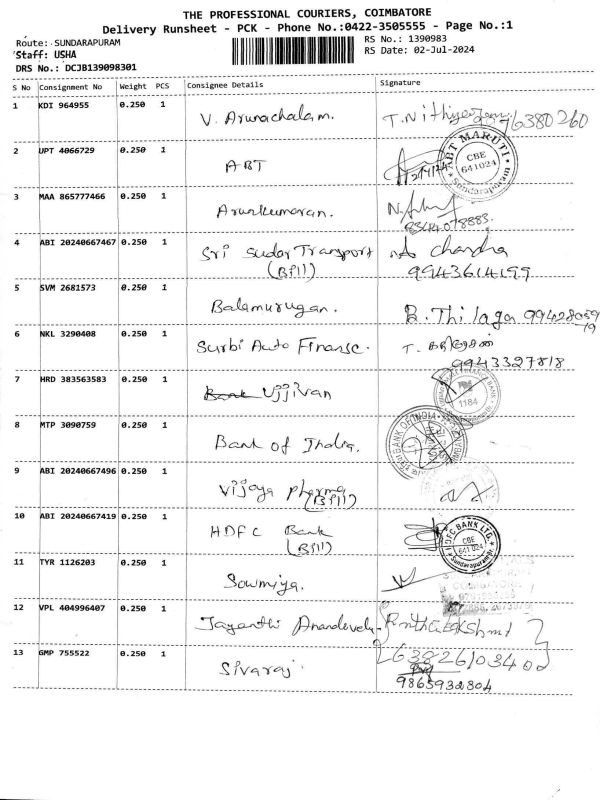 THE PROFESSIONAL COURIERS, COIMBATORE
Delivery Runsheet - PCK - Phone No.:0422-3505555 - Page No.:1
Route: SUNDARAPURAM RS No.: 1390983
Staff: USHA RS Date: 02-Jul-2024
DRS No.: DCJB139098301
S No Consignment No Weight PCS Consignee Details Signature
1 KDI 964955 0.250 1 V. Arunachalam. 76380260
2 UPT 4066729 0.250 1 ABT
ABT MARUTI
CBE
641024
Sundarapuram
3 MAA 865777466 0.250 1 Arunkumaran.
4 ABI 20240667467 0.250 1 Sri Sudar Transport chandra
(Bill) 9943614199
5 SVM 2681573 0.250 1 Balamurugan. B. Thilaga
6 NKL 3290408 0.250 1 Surbi Auto Finansc.
9943327818
7 HRD 383563583 0.250 1 Bank Ujjivan
1184
8 MTP 3090759 0.250 1 Bank of India.
BANK OF INDIA
9 ABI 20240667496 0.250 1 Vijaya pharma
(Bill)
10 ABI 20240667419 0.250 1 HDFC Bank
(Bill)
BANK LTD.
CBE
641 024
Sundarapuram
11 TYR 1126203 0.250 1 Sowmiya.
12 VPL 404996407 0.250 1 Jayanthi
6382610340
13 GMP 755522 0.250 1 Sivaraj
9865932804